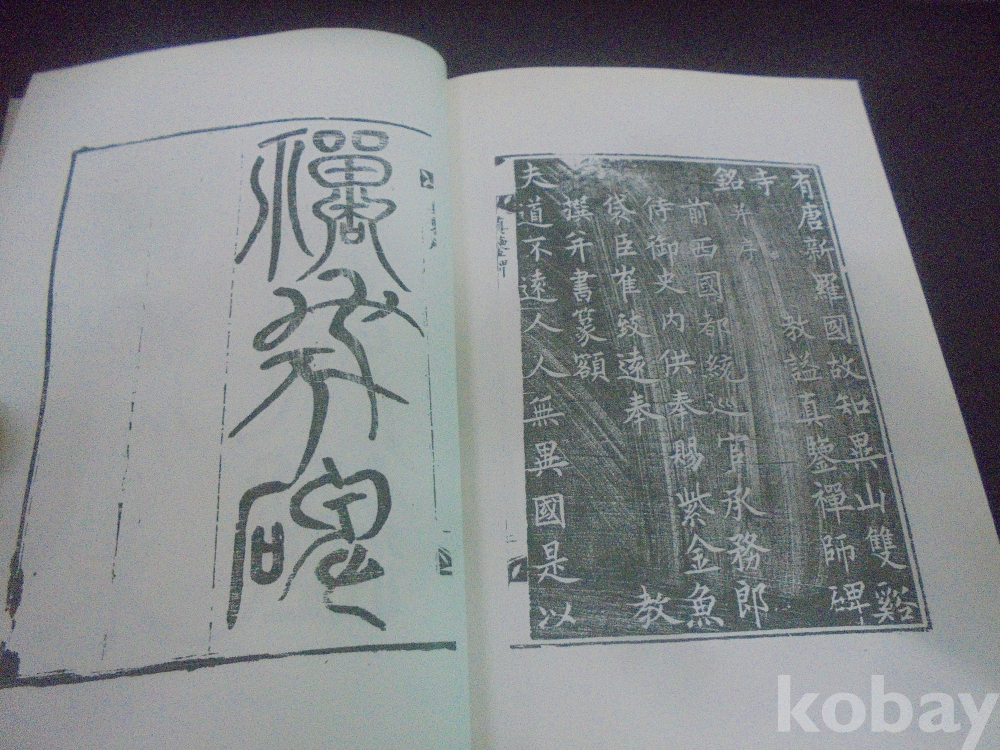 有唐新羅國故知異山雙谿
寺 教謚真鑒禪師碑
銘并序
前西國都統巡官承務郎
侍御史內供奉賜紫金魚
袋臣崔致遠奉 教
撰并書篆額
夫道不遠人人無異國是以
禪師碑
kobay